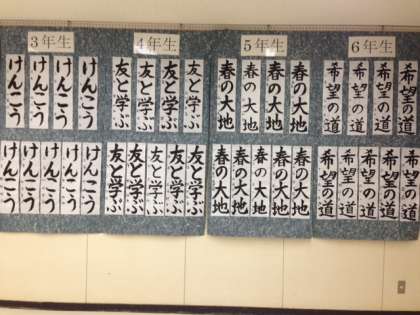 3年生
けんこう
けんこう
けんこう
けんこう
けんこう
けんこう
けんこう
けんこう
けんこう
4年生
友と学ぶ
友と学ぶ
友と学ぶ
友と学ぶ
友と学ぶ
友と学ぶ
友と学ぶ
友と学ぶ
友と学ぶ
5年生
春の大地
春の大地
春の大地
春の大地
春の大地
春の大地
春の大地
春の大地
春の大地
6年生
希望の道
希望の道
希望の道
希望の道
希望の道
希望の道
希望の道
希望の道
希望の道